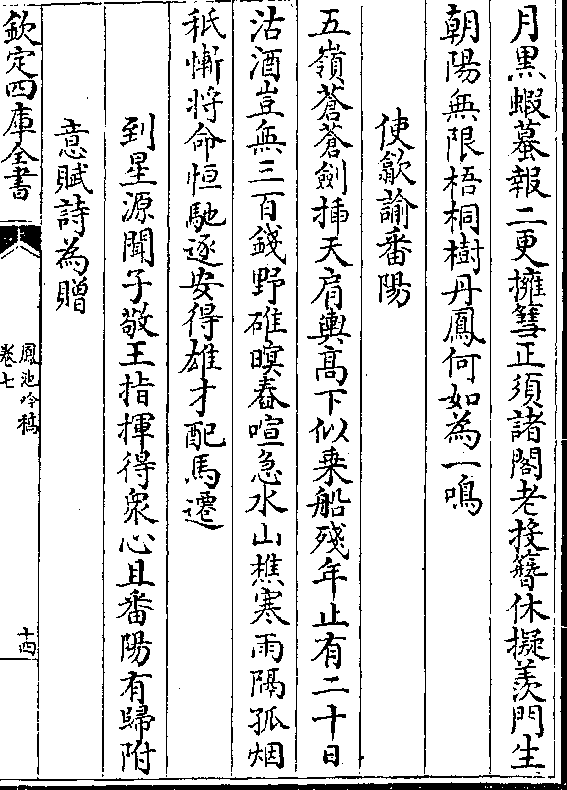 月黒蝦蟇報二更擁彗正須諸閣老投簪休擬羨門生
朝陽無限梧桐樹丹鳳何如為一鳴
使歙諭番陽
五嶺蒼蒼劍揷天肩輿髙下似乗船殘年止有二十日
沽酒豈無三百錢野碓暝舂喧急水山樵寒雨隔孤烟
秖慚将命恒馳逐安得雄才配馬遷
到星源聞子敬王指揮得衆心且番陽有歸附
意賦詩為贈
欽定四庫全書
鳳池吟稿
卷七
十四